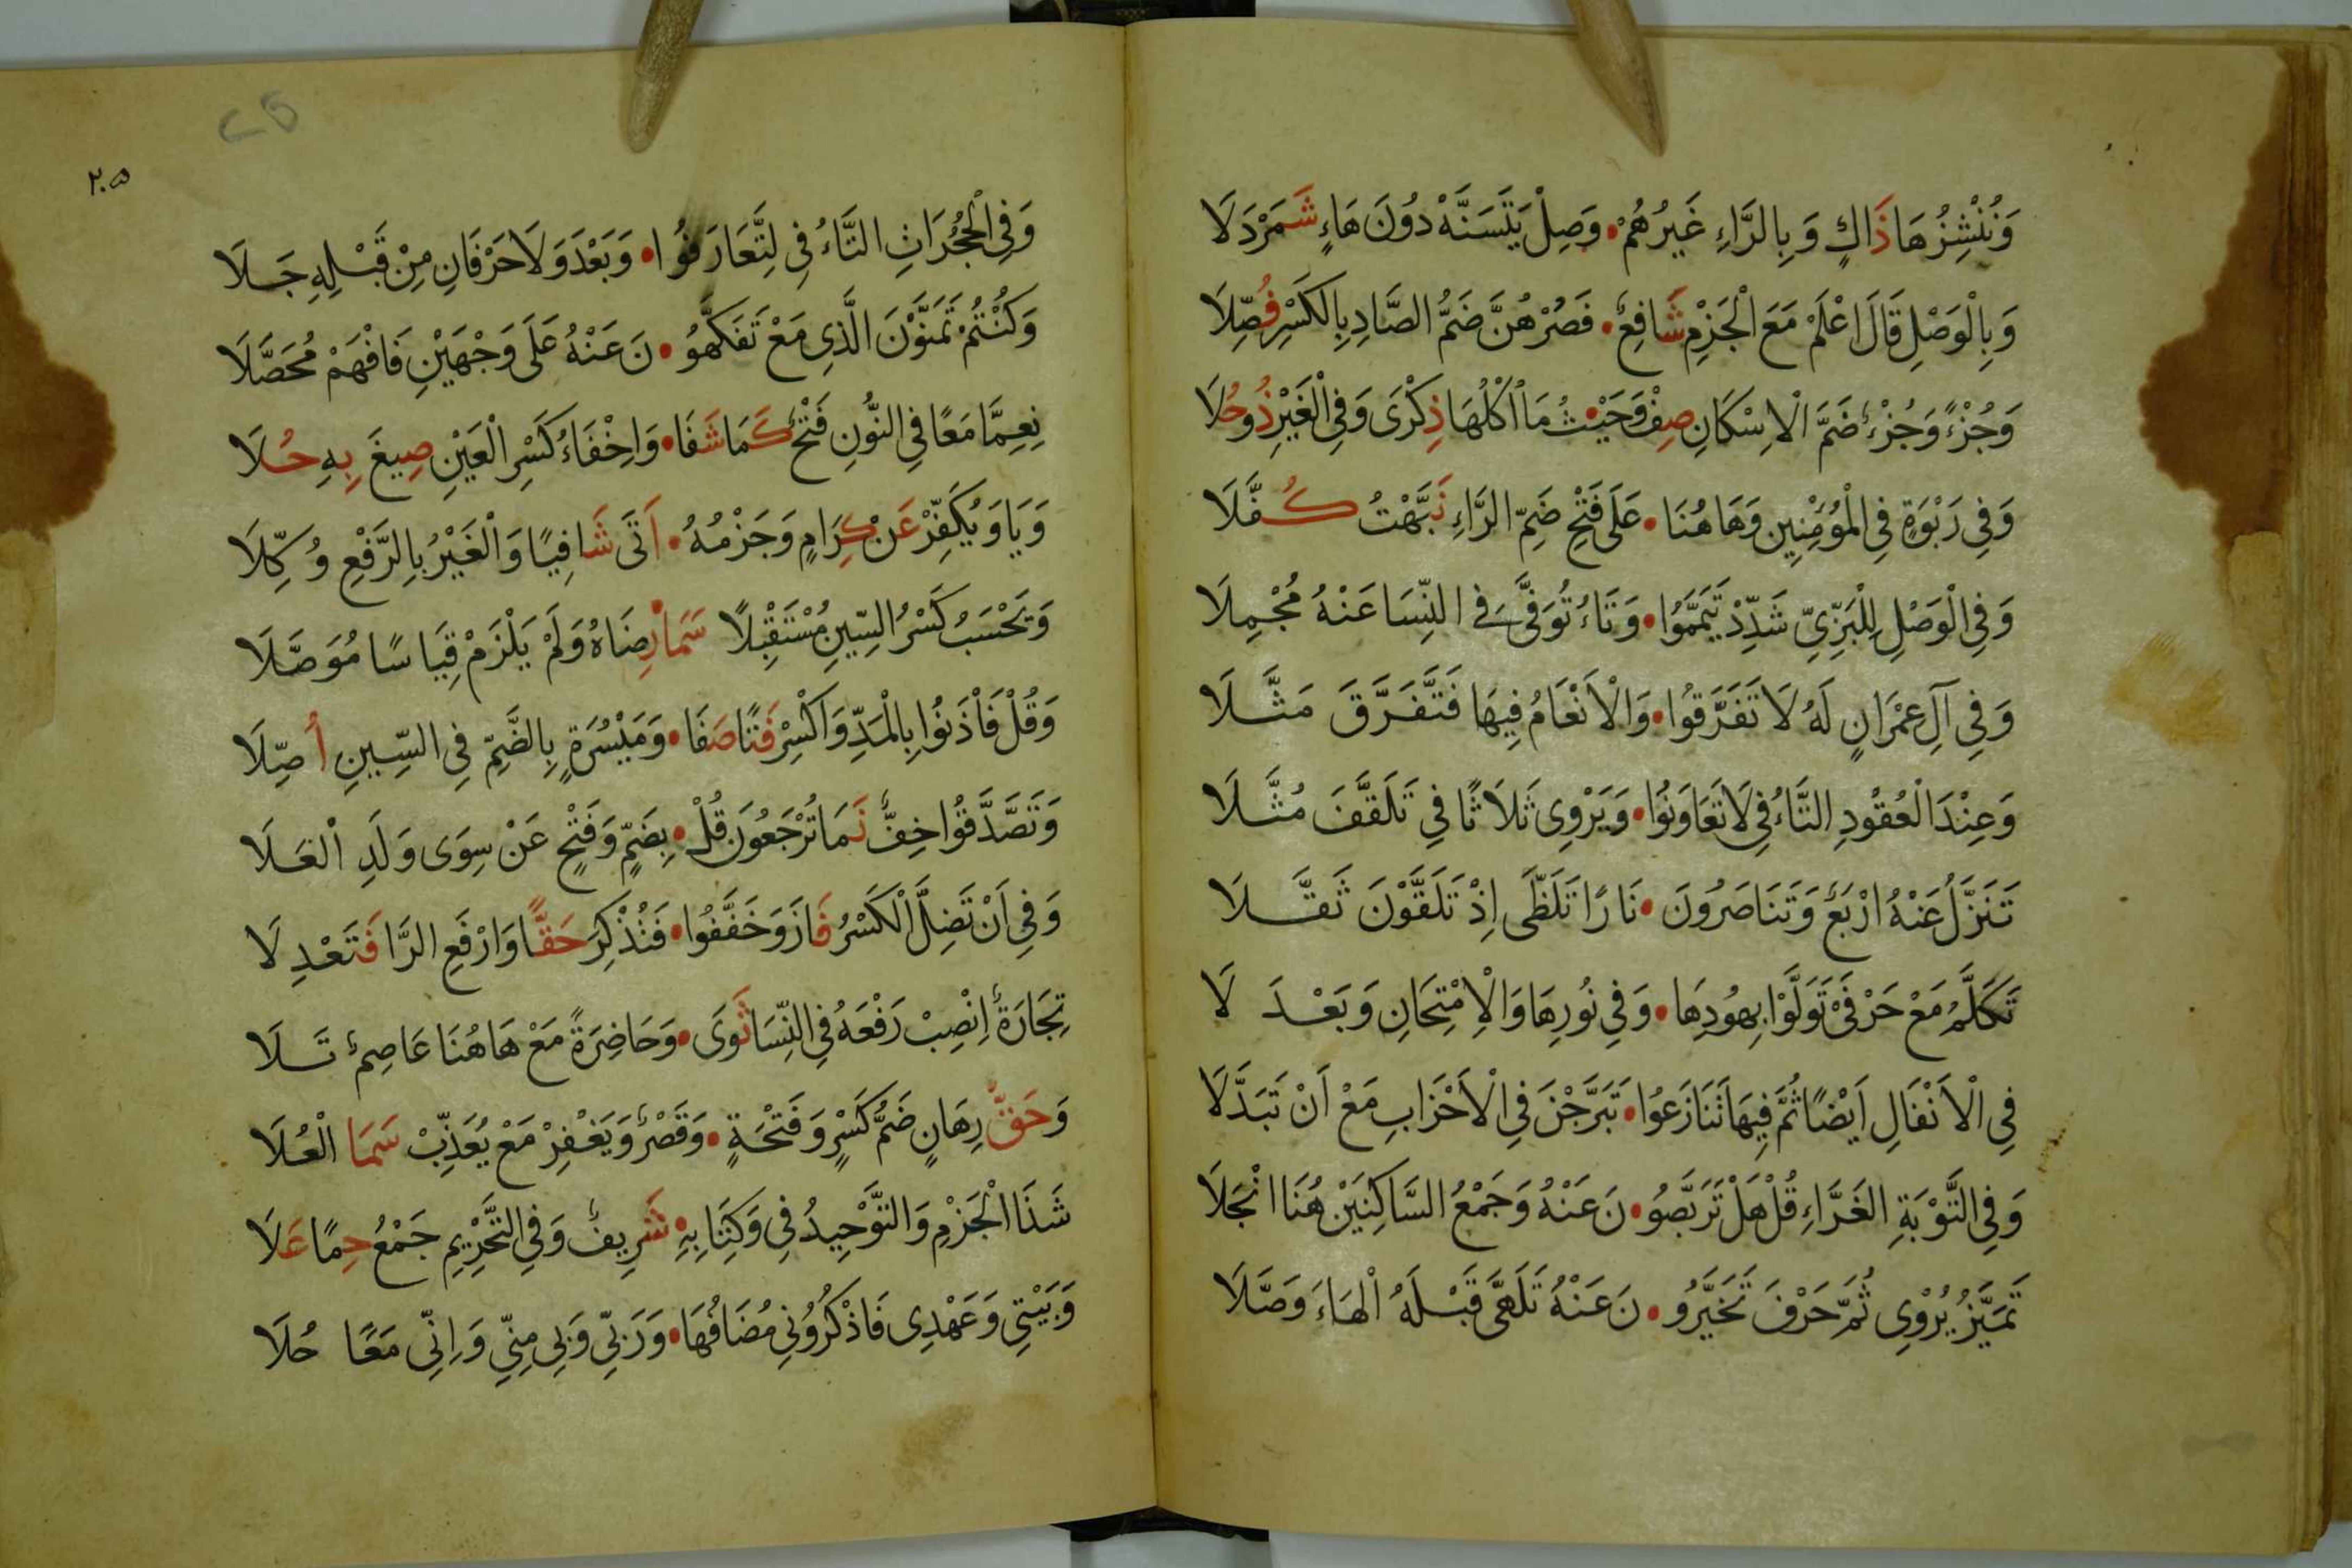 وَنُنْشِزُهَا ذَاكٍ وَبِالرَّاءِ غَيْرُهُمْ • وَصِلْ يَتَسَنَّهْ دُونَ هَاءٍ شَمَرْدَلَا
وَبِالْوَصْلِ قَالَ اعْلَمْ مَعَ الْجَزْمِ شَافِعٌ • فَصُرْهُنَّ ضَمُّ الصَّادِ بِالْكَسْرِ فُصِّلَا
وَجُزْءًا وَجُزْءٌ ضَمَّ الْاِسْكَانِ صِفْ وَحَيْثُمَا اُكْلُهَا ذِكْرَى وَفِي الْغَيْرِ ذُو حُلَا
وَفِي رَبْوَةٍ فِي الْمُؤْمِنِينَ وَهَاهُنَا • عَلَى فَتْحِ ضَمِّ الرَّاءِ نَبَّهْتُ كُفَّلَا
وَفِي الْوَصْلِ لِلْبَزِّيِّ شَدِّدْ تَيَمَّمُوا • وَتَاءُ تُوَفَّى فِي النِّسَا عَنْهُ مُجْمِلَا
وَفِي آلِ عِمْرَانٍ لَهُ لَا تَفَرَّقُوا • وَالْاَنْعَامُ فِيهَا فَتَّفَرَّقَ مَثَّلَا
وَعِنْدَ الْعُقُودِ التَّاءُ فِي لَا تَعَاوَنُوا • وَيَرْوِى ثَلَاثًا فِي تَلَقَّفَ مُثَّلَا
تَنَزَّلُ عَنْهُ اَرْبَعٌ وَتَنَاصَرُونَ • نَارًا تَلَظَّى اِذْ تَلَقَّوْنَ ثَقَّلَا
تَكَلَّمُ مَعْ حَرْفَيْ تَوَلَّوْا بِهُودِهَا • وَفِي نُورِهَا وَالْاِمْتِحَانِ وَبَعْدَ لَا
فِي الْاَنْفَالِ اَيْضًا ثُمَّ فِيهَا تَنَازَعُوا • تَبَرَّجْنَ فِي الْاَحْزَابِ مَعْ اَنْ تَبَدَّلَا
وَفِي التَّوْبَةِ الْغَرَّاءِ قُلْ هَلْ تَرَبَّصُو • نَ عَنْهُ وَجَمْعُ السَّاكِنَيْنِ هُنَا انْجَلَا
تَمَيَّزُ يُرْوِى ثُمَّ حَرْفَ تَخَيَّرُو • نَ عَنْهُ تَلَهَّى قَبْلَهُ الْهَاءَ وَصَّلَا
٢٠٥
٢٥
وَفِي الْحُجُرَاتِ التَّاءُ فِي لِتَّعَارَفُوا • وَبَعْدَ وَلَا حَرْفَانِ مِنْ قَبْلِهِ جَلَا
وَكُنْتُمْ تَمَنَّوْنَ الَّذِى مَعْ تَفَكَّهُو • نَ عَنْهُ عَلَى وَجْهَيْنِ فَافْهَمْ مُحَصَّلَا
نِعِمَّا مَعًا فِي النُّونِ فَتْحٌ كَمَا شَفَا • وَاِخْفَاءُ كَسْرِ الْعَيْنِ صِيغَ بِهِ حُلَا
وَيَا وَيُكَفِّرْ عَنْ كِرَامٍ وَجَزْمُهُ • اَتَى شَافِيًا وَالْغَيْرُ بِالرَّفْعِ وُكِّلَا
وَيَحْسَبُ كَسْرُ السِّينِ مُسْتَقْبِلًا سَمَا • رِضَاهُ وَلَمْ يَلْزَمْ قِيَاسًا مُوَصَّلَا
وَقُلْ فَاْذَنُوا بِالْمَدِّ وَاكْسِرْ فَتًا صَفَا • وَمَيْسُرَةٍ بِالضَّمِّ فِي السِّينِ اُصِّلَا
وَتَصَّدَّقُوا خِفٌّ نَمَا تُرْجَعُونَ قُلْ • بِضَمٍّ وَفَتْحٍ عَنْ سِوَى وَلَدِ الْعَلَا
وَفِي اَنْ تَضِلَّ الْكَسْرُ فَازَ وَخَفَّفُوا • فَتُذْكِرَ حَقًّا وَارْفَعِ الرَّا فَتَعْدِلَا
تِجَارَةٌ اِنْصِبْ رَفْعَهُ فِي النِّسَا ثَوَى • وَحَاضِرَةً مَعْ هَاهُنَا عَاصِمٌ تَلَا
وَحَقُّ رِهَانٍ ضَمُّ كَسْرٍ وَفَتْحَةٍ • وَقَصْرٌ وَيَغْفِرْ مَعْ يُعَذِّبْ سَمَا الْعُلَا
شَذَا الْجَزْمِ وَالتَّوْحِيدُ فِي وَكِتَابِهِ • شَرِيفٌ وَفِي التَّحْرِيمِ جَمْعُ حِمًا عَلَا
وَبَيْتِي وَعَهْدِى فَاذْكُرُونِي مُضَافُهَا • وَرَبِّي وَبِي مِنِّي وَاِنِّي مَعًا حُلَا